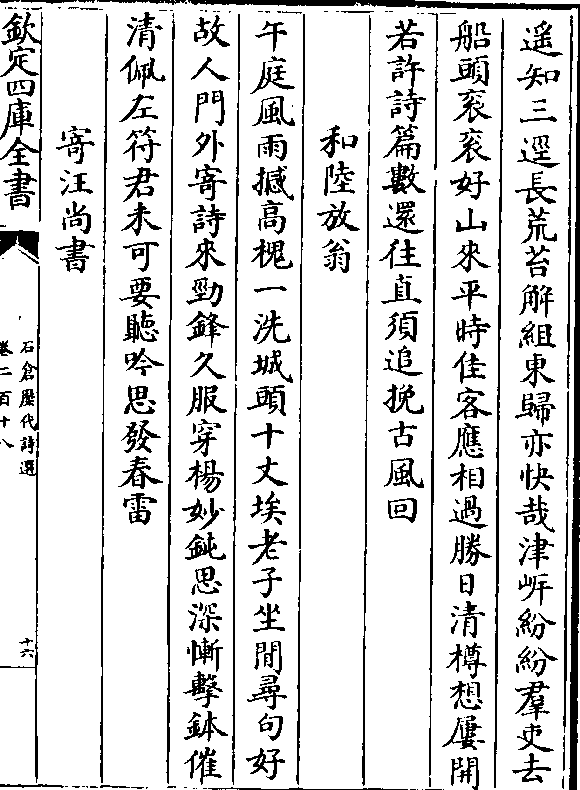 遥知三逕長荒苔解組東歸亦快哉津㟁紛紛羣吏去
船頭衮衮好山來平時佳客應相過勝日清樽想屢開
若許詩篇數還往直須追挽古風回
和陸放翁
午庭風雨撼高槐一洗城頭十丈埃老子坐閒尋句好
故人門外寄詩來勁鋒久服穿楊妙鈍思深慚擊鉢催
清佩左符君未可要聽吟思發春雷
寄汪尚書
欽定四庫全書
石倉歷代詩選
卷二百十八
十六